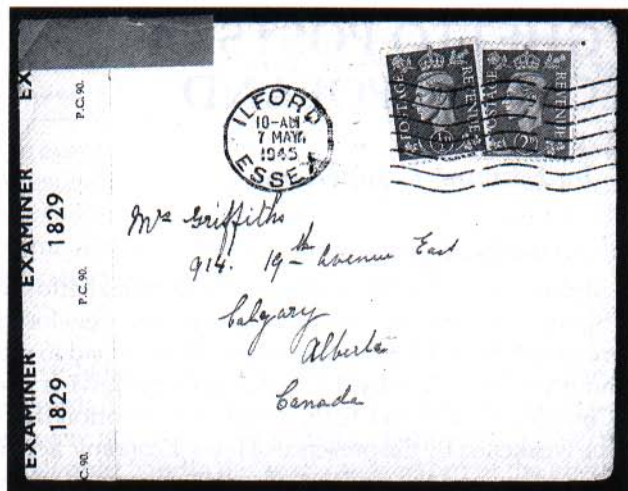 EX
P.C. 90.
EXAMINER
1829
P.C. 90.
EXAMINER
1829
C. 90.
ILFORD
10-AM
7 MAY
1945
ESSEX
POSTAGE REVENUE
POSTAGE REVENUE
Mrs Griffiths
914. 19th Avenue East
Calgary
Alberta
Canada